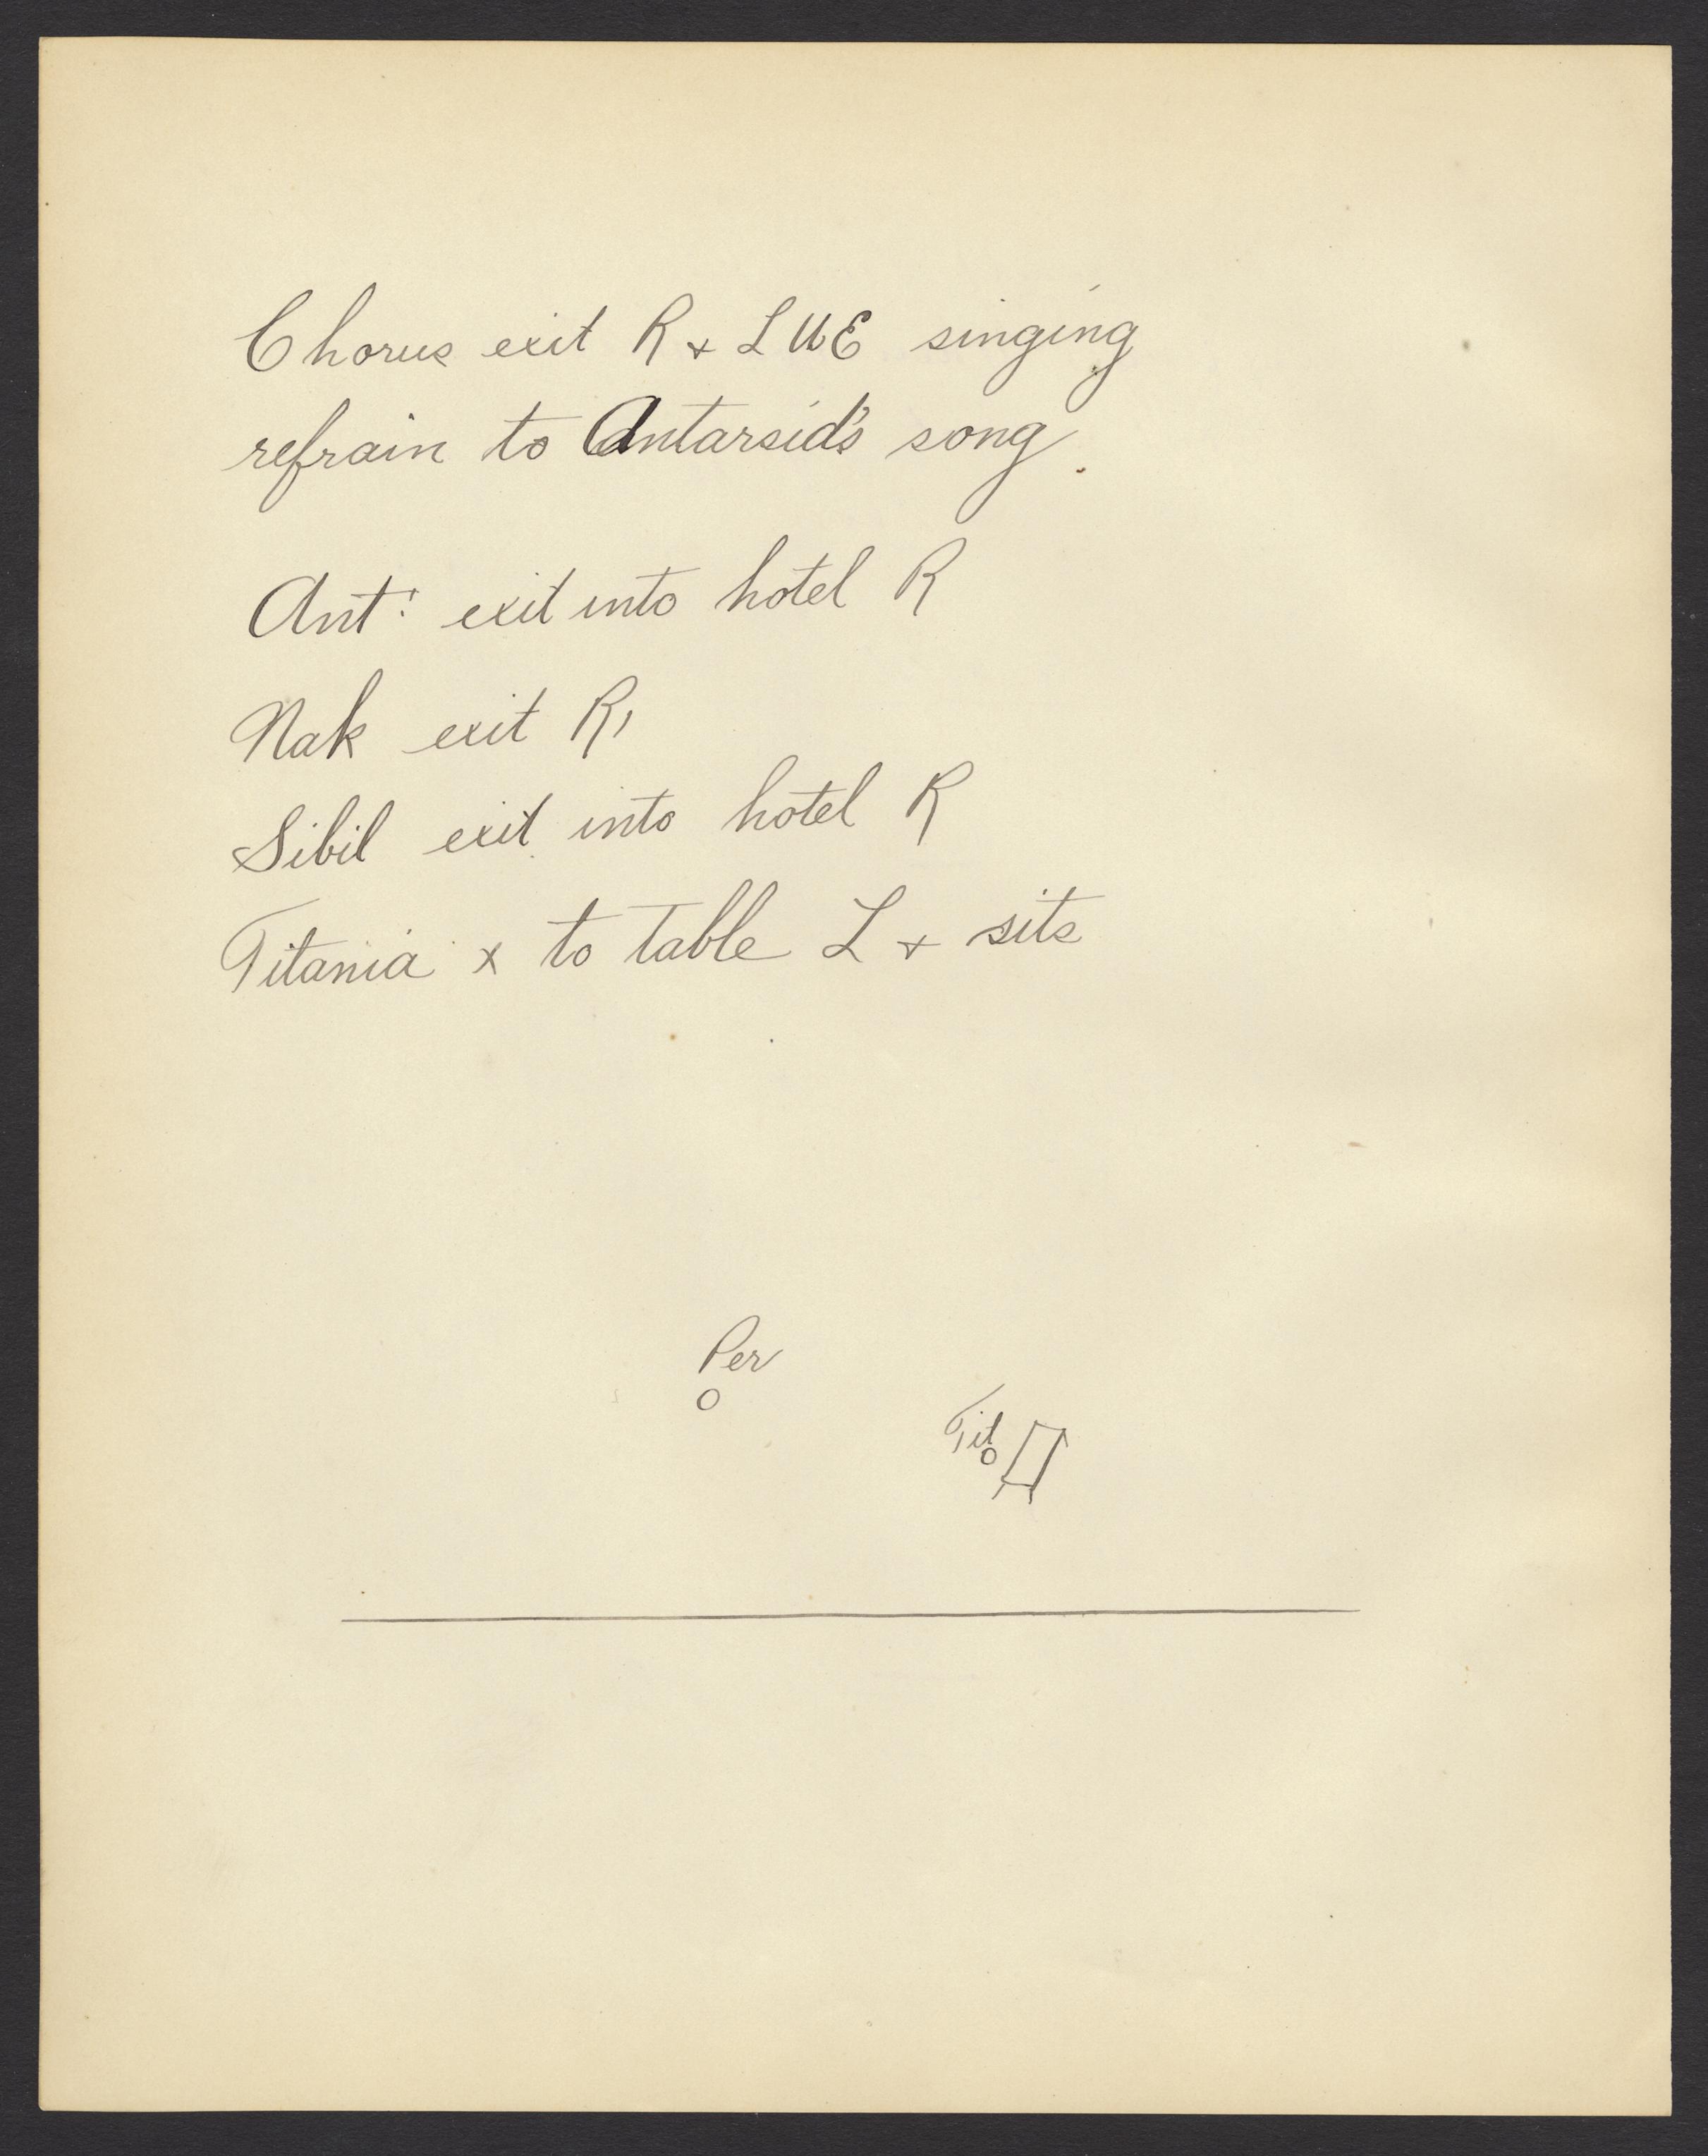 Chorus exit R + L U E singing
refrain to Antarsid's song.
Ant: exit into hotel R
Nak exit R,
Sibil exit into hotel R
Titania x to table L + sits
Per
Tit